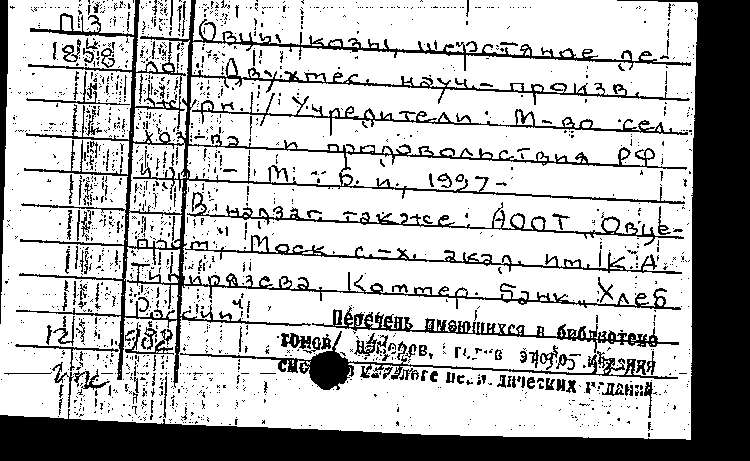 П 3
1858
Овцы, козы, шерстяное де-
ло : Двухмес. науч.- произв.
журн. / Учредители : М-во сел.
хоз-ва и продовольствия РФ
и др. - М. : Б. и., 1997-
В надзаг. также : АООТ „Овце-
пром", Моск. с.-х. акад. им. К.А.
Тимирязева, Коммер. банк „Хлеб
России"
Перечень имеющихся в библиотеке
томов, номеров, годов этого издания
смотри в каталоге периодических изданий
12 982